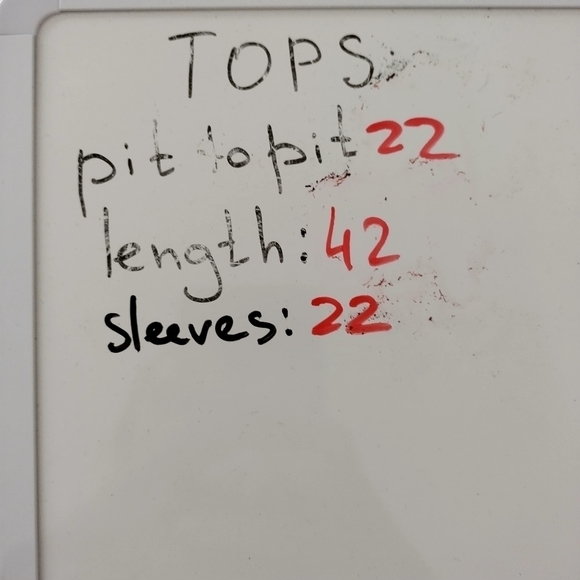 TOPS:
pit to pit 22
length: 42
sleeves: 22